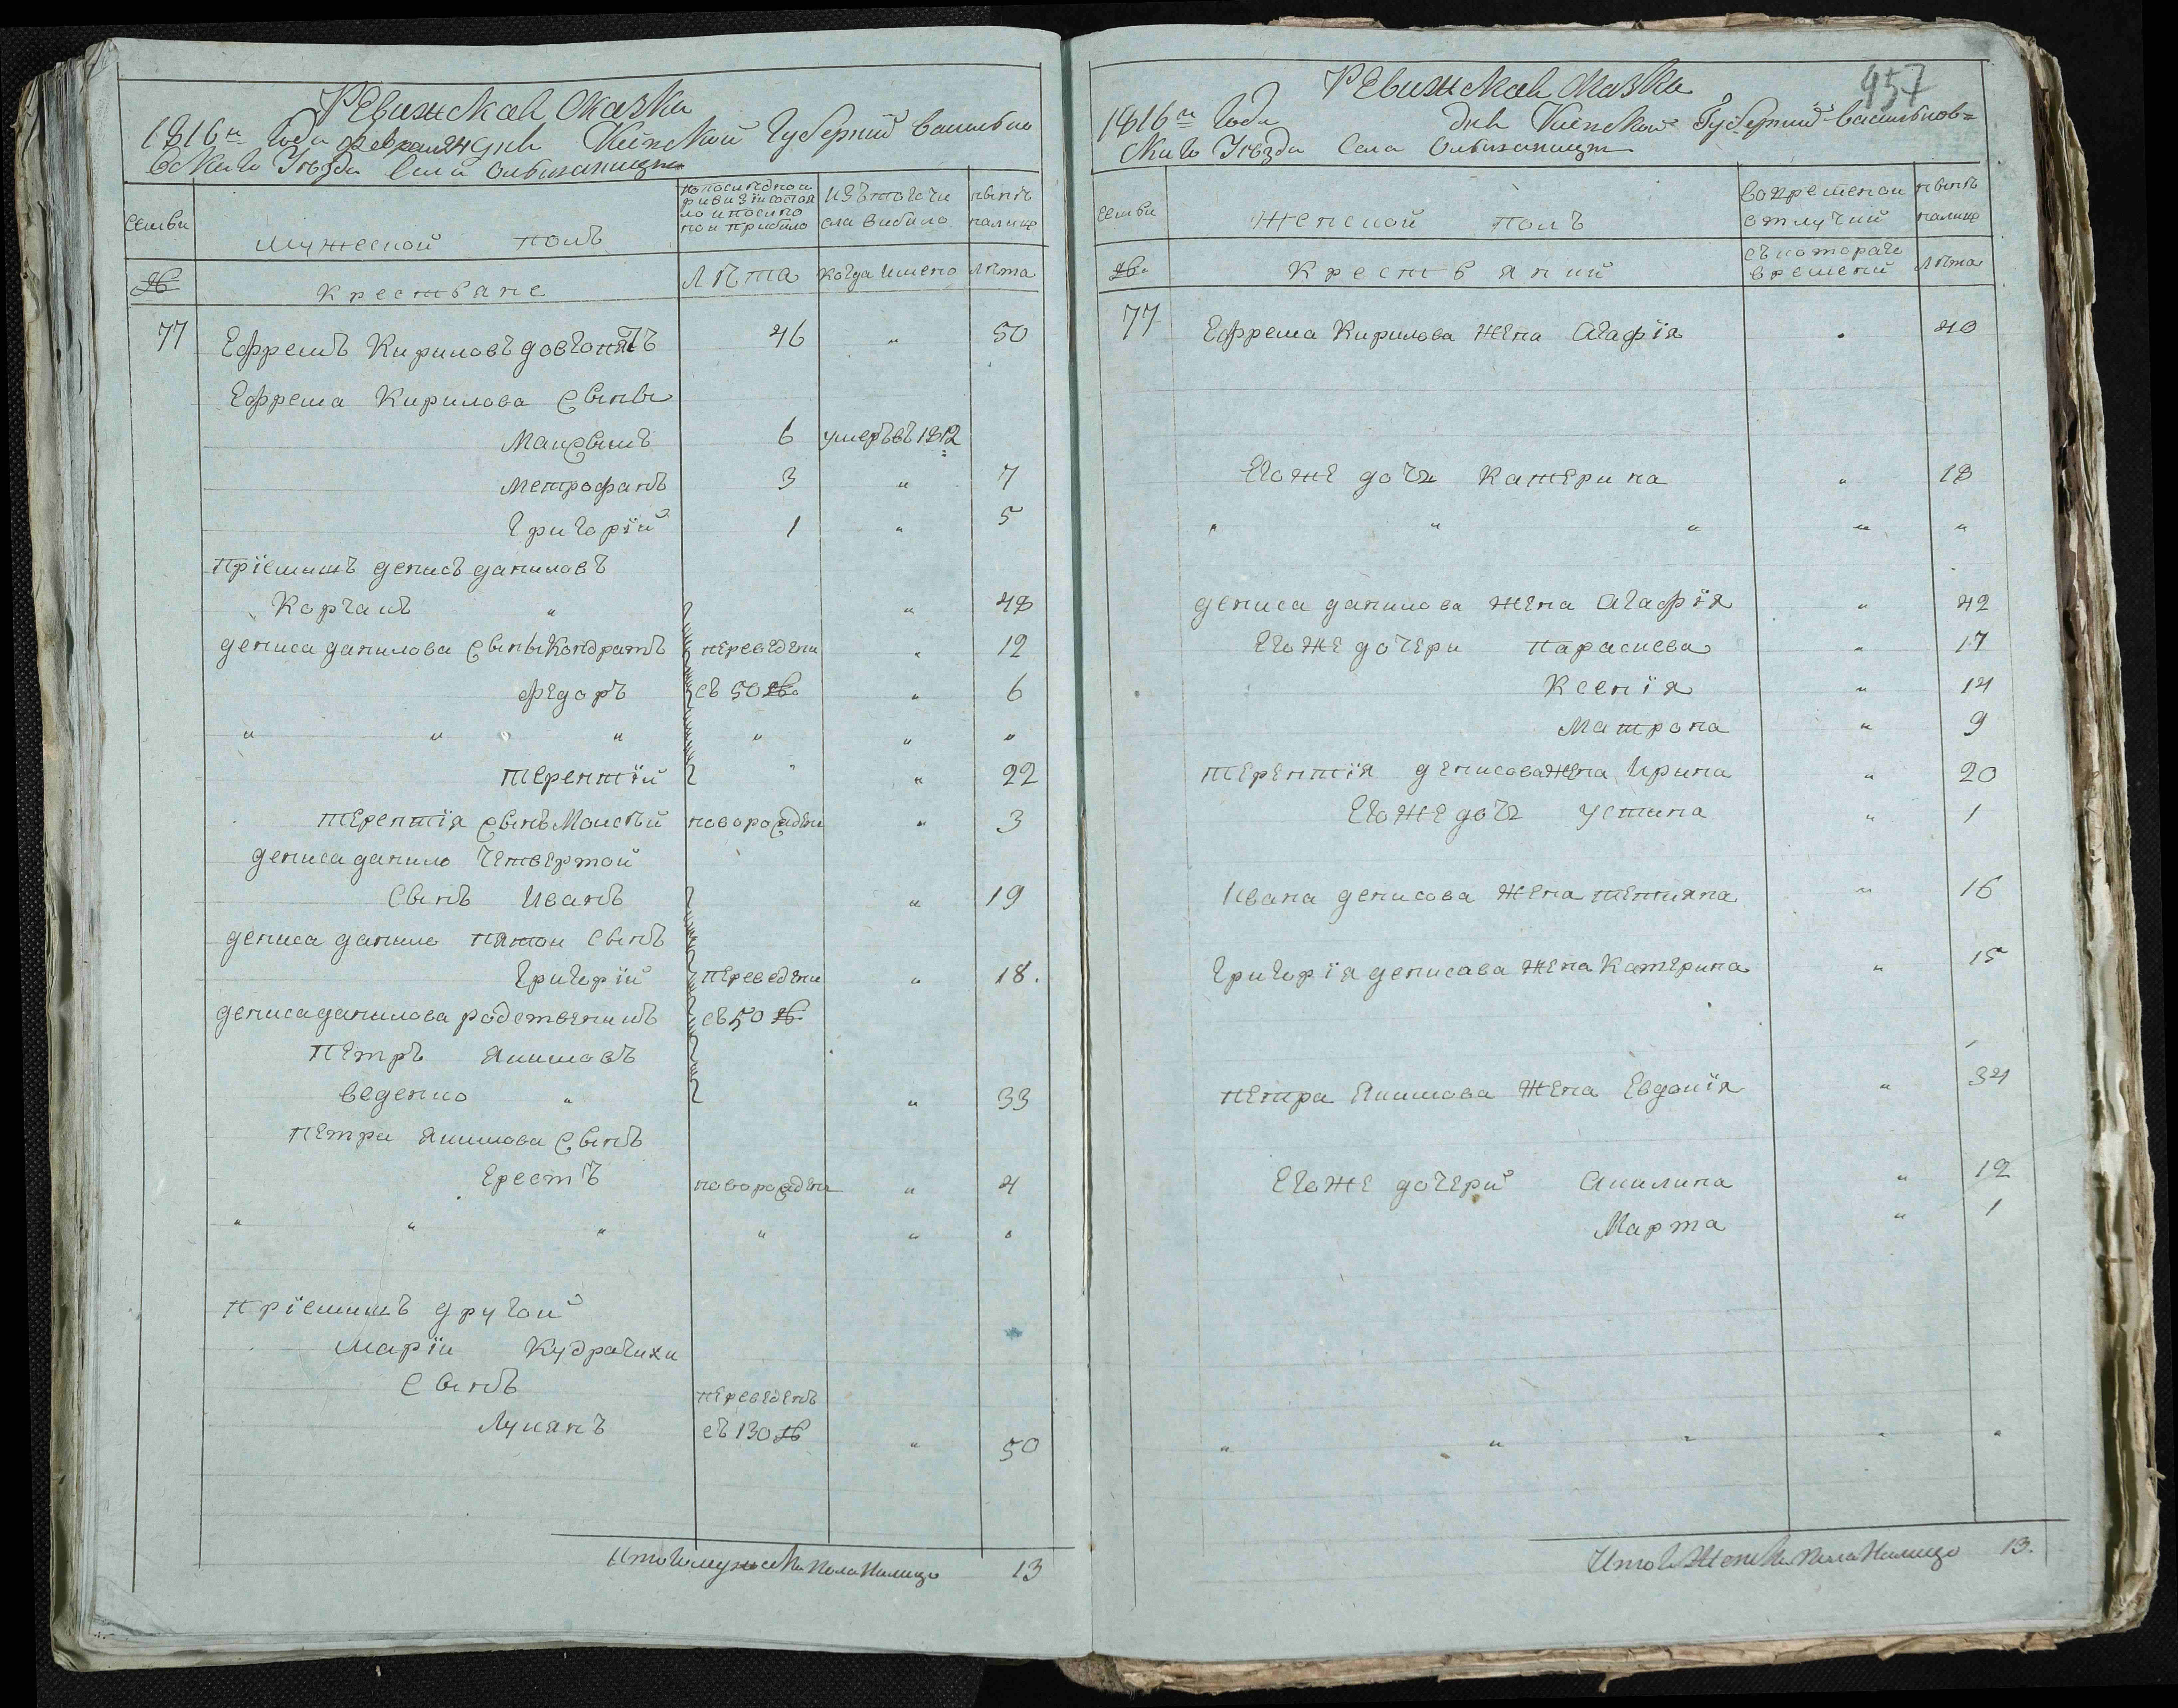 Ревижская Сказка
1816го Года февраля дня Киевской Губерний Василько
вскаго Уезда Села Ольшаницы
Семьи
Мужеской полъ
По последной ривизiи состояло и после по ной прибыло
Изъ того числа выбыло
Нынѣ налицо
№
Крестьяне
Лѣта
Когда имено
Лѣта
77 Ефремъ Кириловъ довгопятъ 46 " 50
Ефрема Кирилова Сыны
Максымъ 6 умеръ въ 1812
Метрофанъ 3 " 7
Григорiй 1 " 5
прiемышъ денисъ даниловъ
Корчакъ " " 48
дениса данилова Сыны Кондратъ переведены " 12
федоръ съ 50 № " 6
" " " " " "
терентiй " " 22
терентiя Сынъ Моисѣй новорожденъ " 3
дениса данило четвертой
Сынъ Иванъ " 19
дениса данило пятои Сынъ
Григорiй переведены " 18.
дениса данилова родственикъ съ 50 №
петръ Якимовъ
веденко " " 33
петра Якимова Сынъ
Ерестъ новорожденъ " 4
" " " " " "
прiемышъ другой
Марiи Кудрачихи
Сынъ переведенъ
Лукянъ съ 130 № " 50
Итого мужеска пола налицо 13
457
Ревижская Сказка
1816го Года дня Киевской Губерний Васильков=
скаго Уезда Села Ольшаницы
Семьи
Женской полъ
Во времeнои отлучкий
Нынѣ налицо
№
Крестьянкий
Съ котораго времений
Лѣта
77 Ефрема Кирилова жена Агафiя " 40
Его же дочь Катерина " 18
" " " " "
дениса данилова жена Агафiя " 42
Его же дочери Параскева " 17
Ксенiя " 14
Матрона " 9
терентiя денисова жена Ирина " 20
Его же дочь Устина " 1
Ивана денисова жена тетияна " 16
Григорiя денисова жена Катерина " 15
петра Якимова жена Евдокiя " 34
Его же дочерий Акилина " 12
Марта " 1
" " " " "
Итого Женска пола налицо 13.